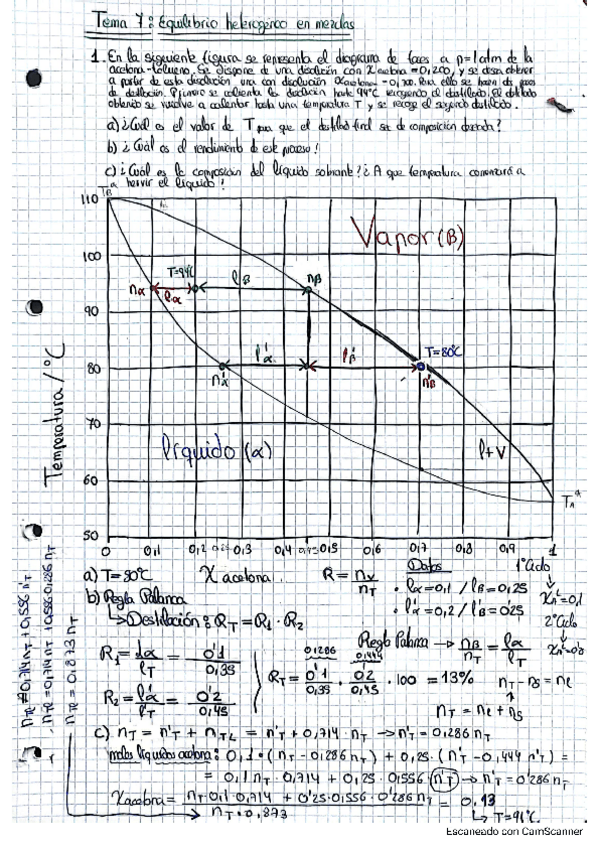 Tema 7: Equilibrio heterogéneo en mezclas
1. En la siguiente figura se representa el diagrama de fases a p=1 atm de la
acetona-tolueno. Se dispone de una disolución con X acetona = 0,200, y se desea obtener
a partir de esta disolución una con disolución X acetona = 0,700. Para ello se hacen dos pasos
de destilación. Primero se calienta la disolución hasta 94°C recogiendo el destilado. El destilado
obtenido se vuelve a calentar hasta una temperatura T y se recoge el segundo destilado.
a) ¿Cuál es el valor de T para que el destilado final sea de composición deseada?
b) ¿Cuál es el rendimiento de este proceso?
c) ¿Cuál es la composición del líquido sobrante? ¿A que temperatura comenzará a
hervir el líquido?
T_B^a
110
100
90
80
70
60
50
Temperatura / °C
Vapor (β)
T=94°C
nα
lα
lβ
nβ
l'α
l'β
T=80°C
n'α
n'β
líquido (α)
l+V
T_A^a
0 0,1 0,2 0,3 0,4 0,45 0,5 0,6 0,7 0,8 0,9 1
X acetona
a) T=80°C
R = n_V / n_T
Datos
1° Ciclo
· lα=0,1 / lβ=0,25
· l'α=0,2 / l'β=0'25
2° Ciclo
b) Regla Palanca
↳ Destilación: R_T = R_1 · R_2
Regla Palanca → nβ/n_T = lα/l_T
R_1 = lα/l_T = 0'1/0,35
R_2 = l'α/l'_T = 0'2/0,45
0,1286
0,444
R_T = 0'1/0,35 · 02/0,45 · 100 = 13%
n_T = n_l + n_s
c) n_T = n'_T + n_TL = n'_T + 0,714 · n_T → n'_T = 0,286 n_T
moles líquidos acetona: 0,1 · (n_T - 0,286 n_T) + 0,25 · (n'_T - 0,444 n'_T) =
= 0,1 n_T · 0,714 + 0,25 · 0,556 n'_T → n'_T = 0'286 n_T
X acetona = n_T · 0,1 · 0,714 + 0'25 · 0,556 · 0'286 n_T / n_T · 0,873 = 0,13
↳ T=91°C
n_Tl = 0,714 n_T + 0,556 n'_T
n_Tl = 0,714 n_T + 0,556 · 0,286 n_T
n_Tl = 0,873 n_T
Escaneado con CamScanner